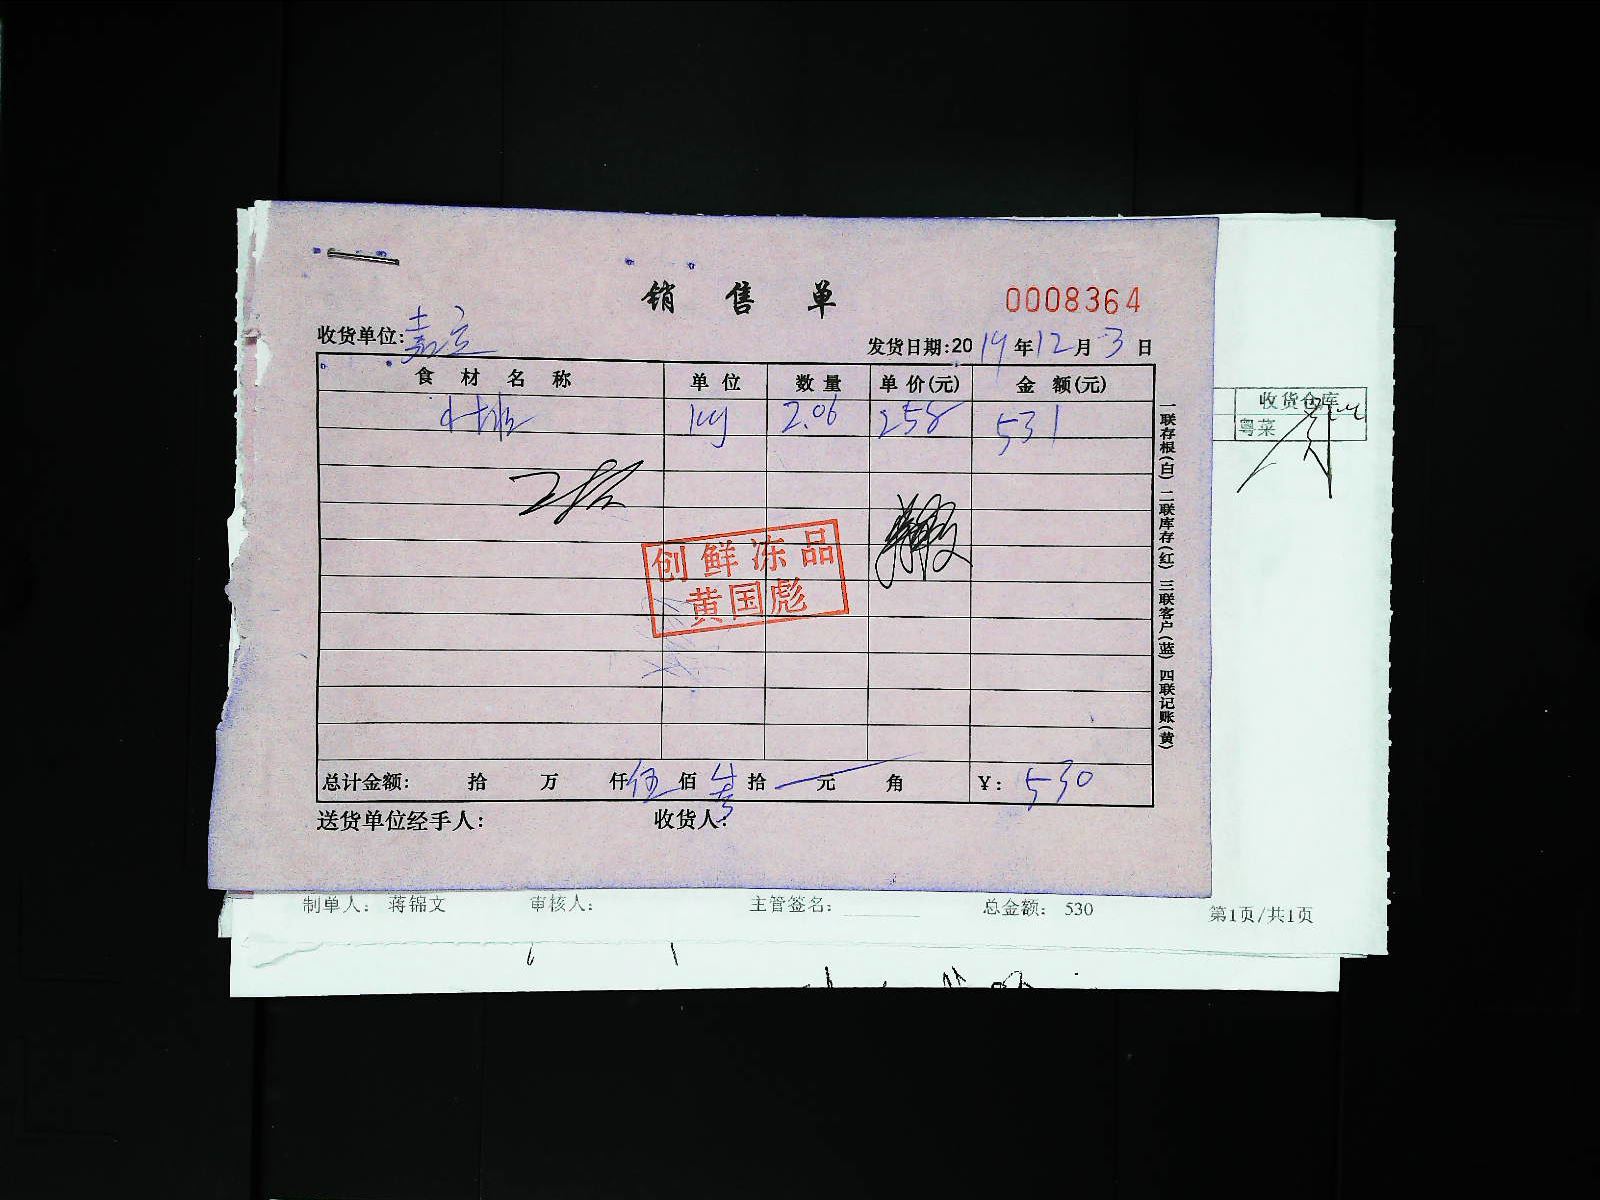 销售单
0008364
收货单位:嘉立
发货日期:2019年12月3日
食材名称 单位 数量 单价(元) 金额(元)
kg 2.06 258 531
创鲜冻品
黄国彪
总计金额: 拾 万 仟伍佰 拾 元 角 ¥: 530
送货单位经手人: 收货人:
一联存根(白) 二联库存(红) 三联客户(蓝) 四联记账(黄)
收货仓库
粤菜
制单人: 蒋锦文 审核人: 主管签名: 总金额: 530 第1页/共1页